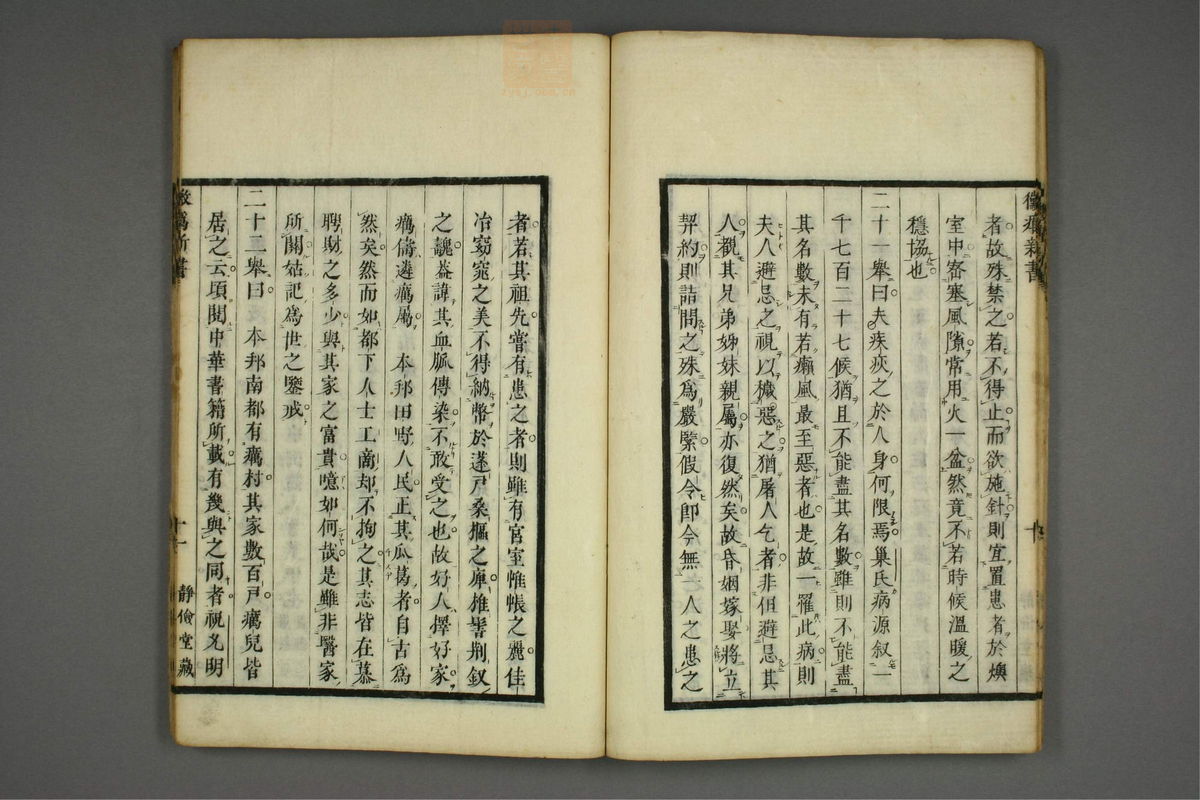 黴癘新書
十
者故殊禁之若不得止而欲施針則宜置患者於燠
室中密塞風隙常用火一盆然竟不若時候溫暖之
穩協也
二十一舉曰夫疾疢之於人身何限焉巢氏病源叙一
千七百二十七候猶且不能盡其名數雖則不能盡
其名數未有若癩風最至惡者也是故一罹此病則
夫人避忌之視以穢惡之猶屠人乞者非但避忌其
人觀其兄弟姊妹親屬亦復然矣故昏姻嫁娶將立
契約則詰問之殊爲嚴緊假令即今無一人之患之
者若其祖先嘗有患之者則雖有官室惟帳之麗佳
冶窈窕之美不得納幣於蓬戶桑樞之庳椎髻荊釵
之醜蓋諱其血脈傳染不敢受之也故好人擇好家
癘儔遴癘屬 本邦田野人民正其瓜葛者自古爲
然矣然而如都下人士工商却不拘之其志皆在慕
聘財之多少與其家之富貴噫如何哉是雖非醫家
所關姑記爲世之鑒戒
二十二舉曰 本邦南都有癘村其家數百戶癘兒皆
居之云頃閱中華書籍所載有幾與之同者視光明
黴癘新書
十一
靜儉堂藏